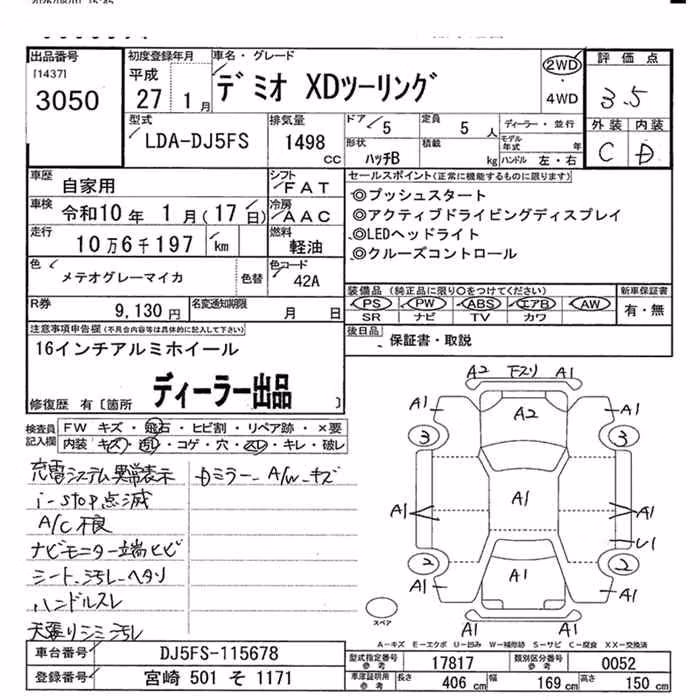 出品番号
[1437]
3050
初度登録年月
平成
27 1 月
車名・グレード
デミオ XDツーリング
2WD
・
4WD
評価点
3.5
外装 内装
C D
型式
LDA-DJ5FS
排気量
1498
CC
ドア
5
形状
ハッチB
定員
5 人
積載
kg
ディーラー・並行
モデル年式 年
ハンドル 左・右
車歴
自家用
シフト
FAT
車検
令和10 年 1 月(17 日)
冷房
AAC
走行
10万6千197 km
燃料
軽油
色
メテオグレーマイカ
色替
色コード
42A
R券
9,130 円
名変通知期限
月 日
セールスポイント(正常に機能するものに限ります)
◎プッシュスタート
◎アクティブドライビングディスプレイ
◎LEDヘッドライト
◎クルーズコントロール
装備品(純正品に限り○をつけてください)
PS PW ABS エアB AW
SR ナビ TV カワ
新車保証書
有・無
後日品
保証書・取説
注意事項申告欄(不具合内容等は具体的に記入して下さい)
16インチアルミホイール
ディーラー出品
修復歴 有〔箇所 〕
検査員記入欄
FW キズ・飛石・ヒビ割・リペア跡・×要
内装・キズ・汚レ・コゲ・穴・スレ・キレ・破レ
充電システム異常表示
i-stop点滅
A/C不良
ナビモニター立端ヒビ
シート汚レ ヘタリ
ハンドルスレ
天張りシミ汚レ
ミラー A/W キズ
A2 下スリ A1
A1 A2 A1
3 3
A1 A1 A1
U1
2 2
A1 A1 A1
A1 A1
スペア
A-キズ E-エクボ U-凹み W-補修跡 S-サビ C-腐食 XX-交換済
車台番号
DJ5FS-115678
登録番号
宮崎 501 そ 1171
型式指定番号
参考
17817
類別区分番号
参考
0052
車庫証明用
参考
長さ 406 cm 幅 169 cm 高さ 150 cm